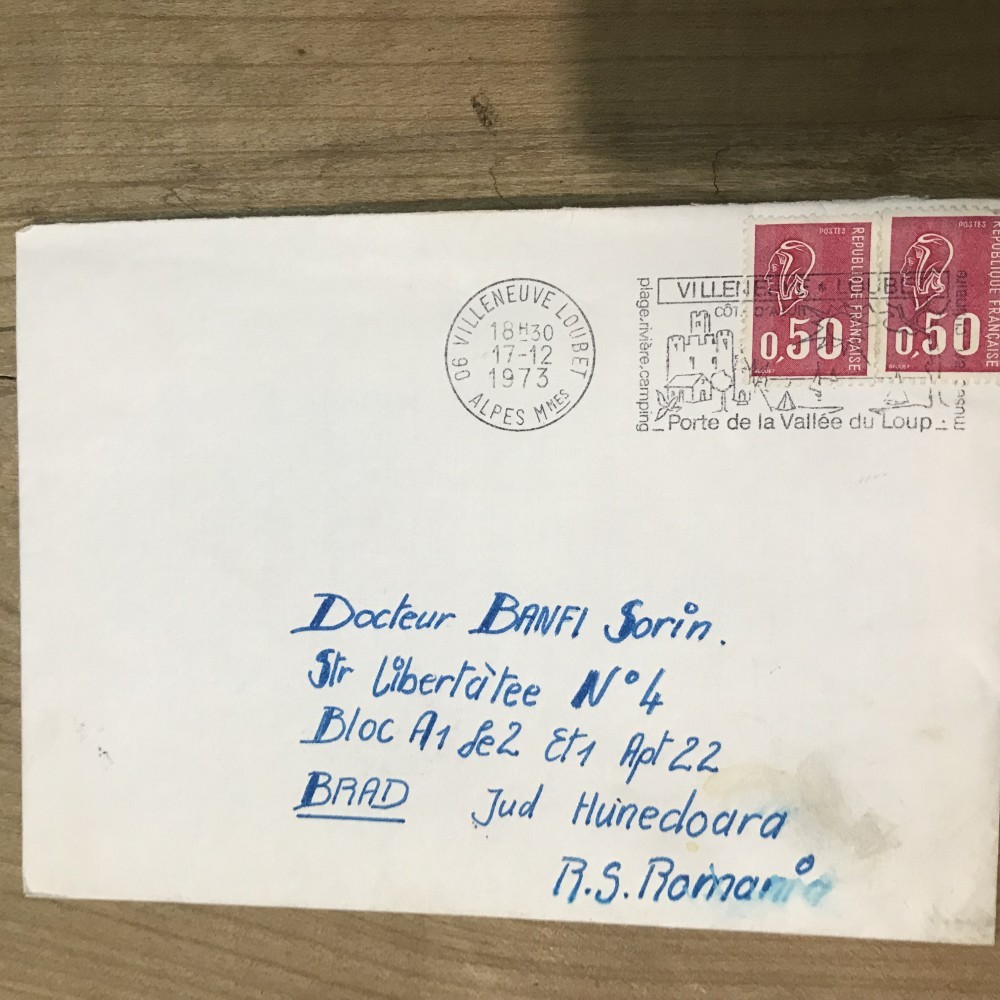 06 VILLENEUVE LOUBET
18H30
17-12
1973
ALPES MMES
plage, rivière, camping
VILLENEUVE LOUBET
CÔTE D'AZUR
Porte de la Vallée du Loup
POSTES
REPUBLIQUE FRANÇAISE
0,50
BEQUET
POSTES
REPUBLIQUE FRANÇAISE
0,50
BEQUET
Docteur BANFI Sorin.
Str Libertàtee N°4
Bloc A1 Se2 Et1 Apt 22
BRAD Jud Hunedoara
R.S. Romania